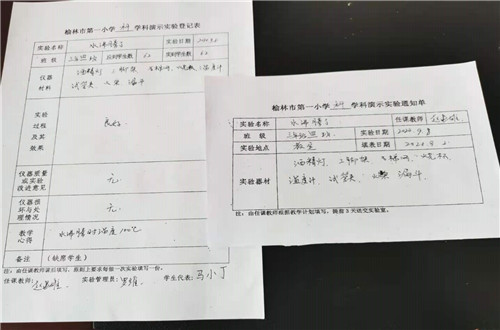 榆林市第一小学 科 学科演示实验登记表
实验名称 水沸腾了 实验日期
班 级 应到学生数 62 实到学生数 62
仪器
材料
酒精灯 三脚架 石棉网 烧杯 温度计
试管夹 火柴 漏斗
实验
过程
及其
效果
良好
仪器质量
或实验
改进意见
无
仪器损
坏与处
理情况
无
教学
心得
水沸腾时温度100℃
备注 (缺席学生)
注：由任课教师课后填写，原则上要求每做一次实验填写一份。
任课教师： 实验管理员： 学生代表：马小丁
榆林市第一小学 科 学科演示实验通知单
实验名称 水沸腾了 任课教师
班 级 实验日期
实验地点 教室 填表日期
实验器材
酒精灯 三脚架 石棉网 烧杯
温度计 试管夹 火柴 漏斗
注：由任课教师根据教学计划填写，提前3天送交实验室。